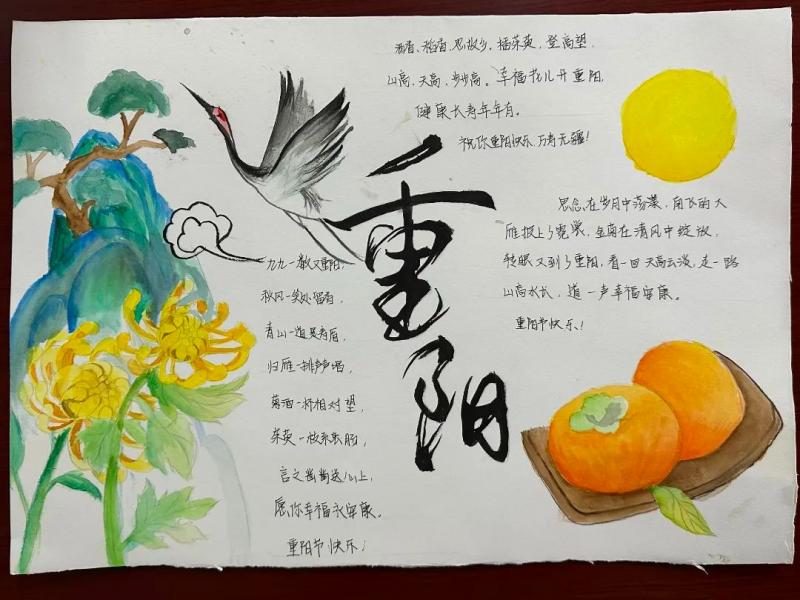 酒香、稻香、思故乡、插茱萸、登高望,
山高、天高、步步高。幸福花儿开重阳,
健康长寿年年有。
祝你重阳快乐万寿无疆!
重阳
思念,在岁月中荡漾,南飞的大
雁披上了霓裳,金菊在清风中绽放,
转眼又到了重阳,看一回天高云淡,走一路
山高水长,道一声幸福安康。
重阳节快乐!
九九一数又重阳,
秋风一笑处留香,
青山一道是寿眉,
归雁一排声声唱,
菊酒一杯相对望,
茱萸一枚系衷肠,
言之凿凿送心上,
愿你幸福永安康。
重阳节快乐!